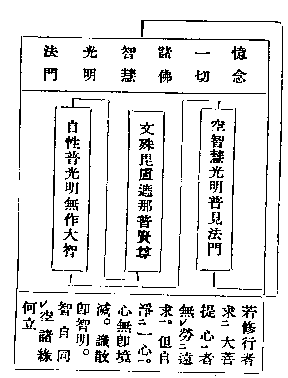 憶念
一切
諸佛
智慧
光明
法門
空智慧光明普見法門
文殊毘盧遮那普賢尊
自性普光明無作大智
若修行者
求㆓大菩
提心㆒者
無㆑勞㆓遠
求㆒。但自
淨㆓一心㆒。
心無即境
滅。識散
即智明。
智自同
㆑空諸緣
何立